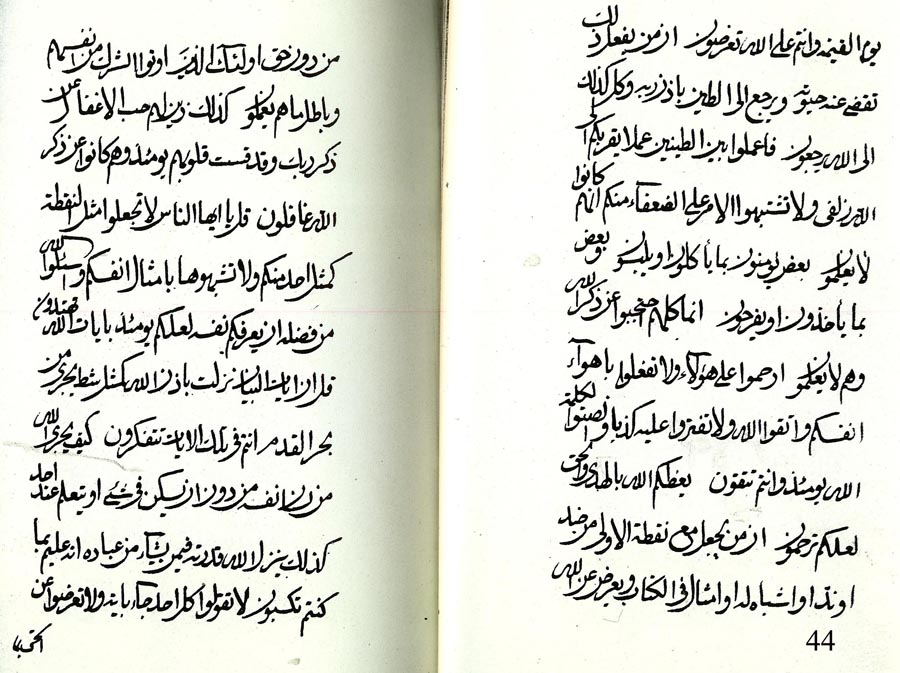 يوم القيمة وانتم على الله تعرضون ان من يفعل ذلك
تقضي عنده حيوته ويرجع الى الطين باذن ربه وكل كذلك
الى الله يرجعون فاعملوا بين الطينين عملا يقربكم الى
الله زلفى ولا تشتبهوا الامر على الضعفاء منكم انهم كانوا
لا يعلمون بعض يومنون بما يأكلون او يلبسون وبعض
بما يأخذون او يفرحون انما كلهم احتجبوا عن ذكر الله
وهم لا يعلمون ارحموا على هؤلاء ولا تفعلوا باهواء
انفسكم واتقوا الله ولا تفتروا عليه كذبا وانصتوا لكلمة
الله يومئذ وانتم تتقون يعظكم الله بالهدى والحق
لعلكم ترحمون ان من يجعل مع نقطة الاولى من ضد
او ند او اشباه له او امثال في الكتاب ويعرض عن الله
44
من دون حق اولئك الذين اوتوا الشرك من انفسهم
وباطل ما هم يعملون كذلك زين لهم حب الاغفال عن
ذكر ربك وقد قست قلوبهم يومئذ وهم كانوا عن ذكر
الله غافلون قل يا ايها الناس لا تجعلوا مثل النقطة
كمثل احد منكم ولا تشبهوها بامثال انفسكم واسئلوا الله
من فضله ان يعرفكم نفسه لعلكم يومئذ بايات الله تهتدون
قل ان ايات البيان نزلت باذن الله كمثل شط يجري من
بحر القدم انتم في تلك الايات تتفكرون كيف يجري الله
من لسان نفسه من دون ان يسكن في شيء او يتعلم عند احد
كذلك ينزل الله قدرته فيمن يشاء من عباده انه عليم بما
كنتم تكسبون لا تقولوا كل احد جاء باية ولا تعرضوا عن